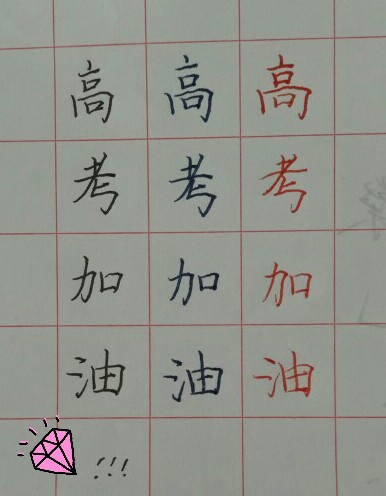 高 高 高
考 考 考
加 加 加
油 油 油
!!!